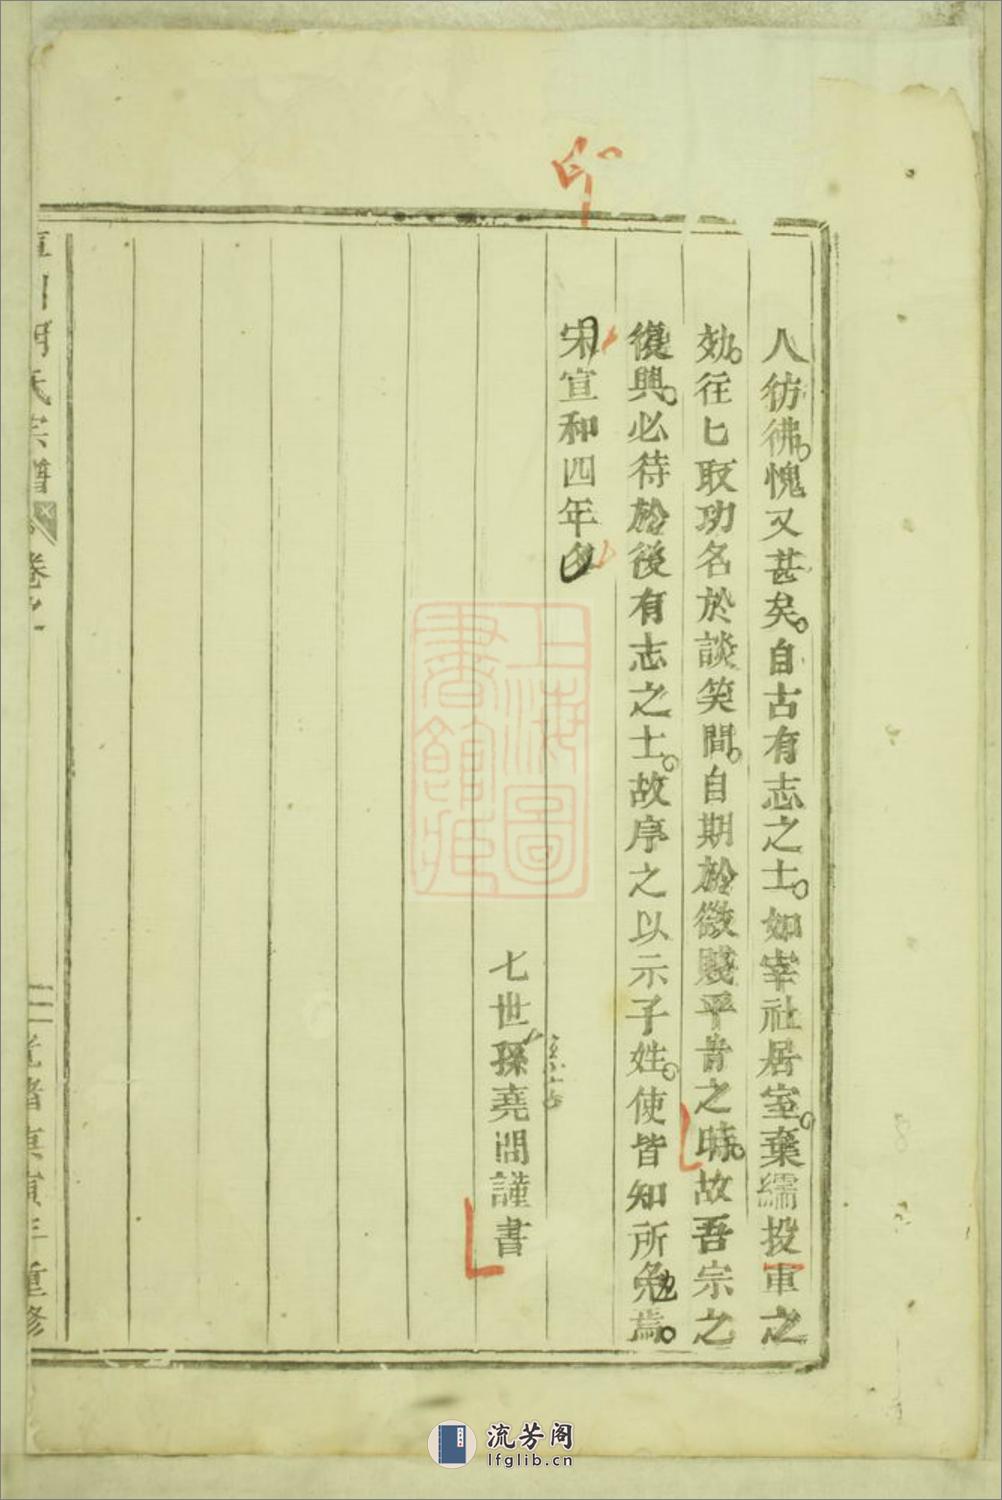 印
人彷彿。愧又甚矣。自古有志之士。如宰社居室。棄繻投軍之
効。往匕取功名於談笑間。自期於微賤平昔之時。故吾宗之
復興。必待於後有志之士。故序之以示子姓。使皆知所免焉。
宋宣和四年
七世孫堯閣謹書
氏宗譜 卷之一
庚寅年重修
上海圖書館藏
流芳阁
lfglib.cn